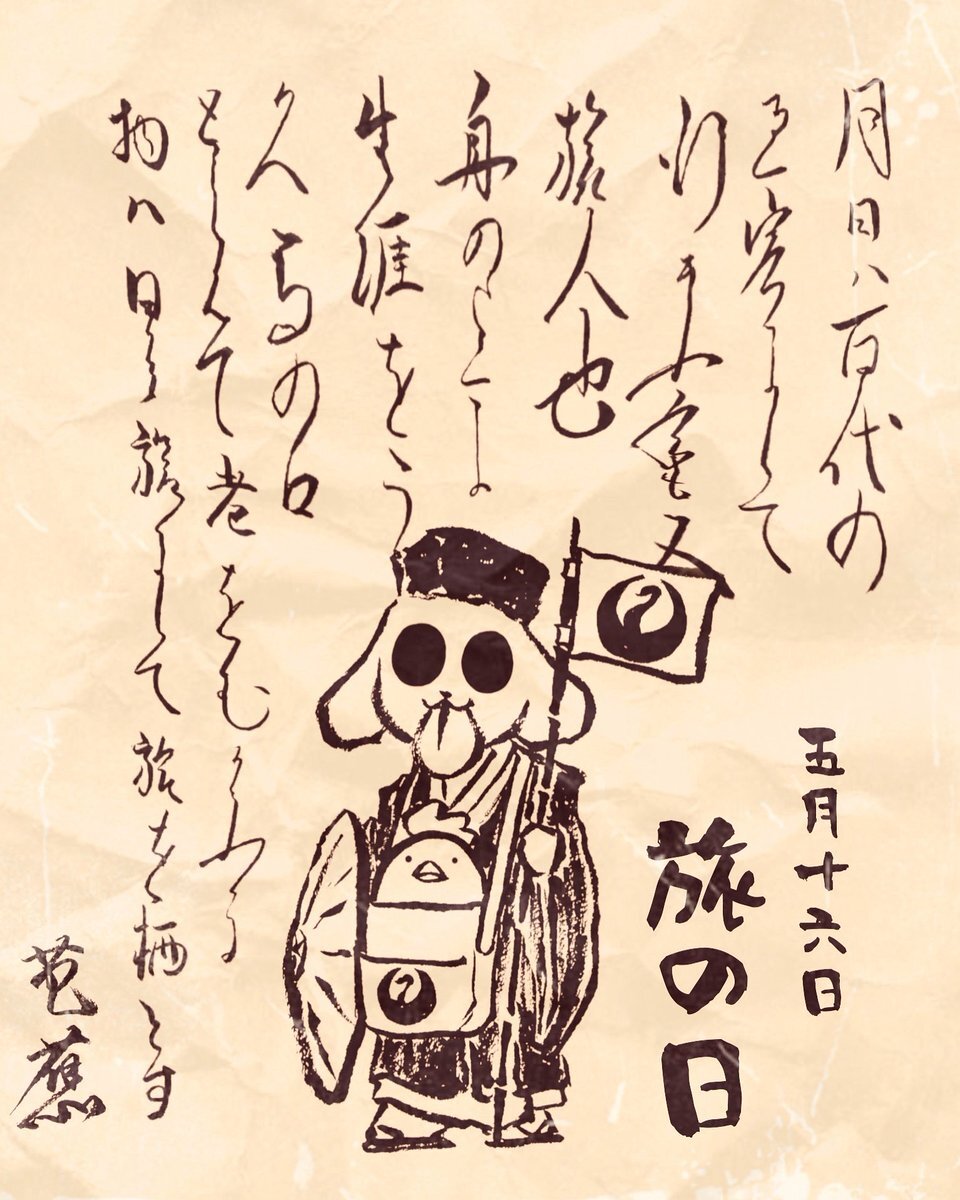 月日ハ百代の
過客にして
行かふ年も又
旅人也
舟のうへに
生涯をう
かへ馬の口
とらえて老をむかふる
物ハ日々旅にして旅を栖とす
芭蕉
五月十六日
旅の日